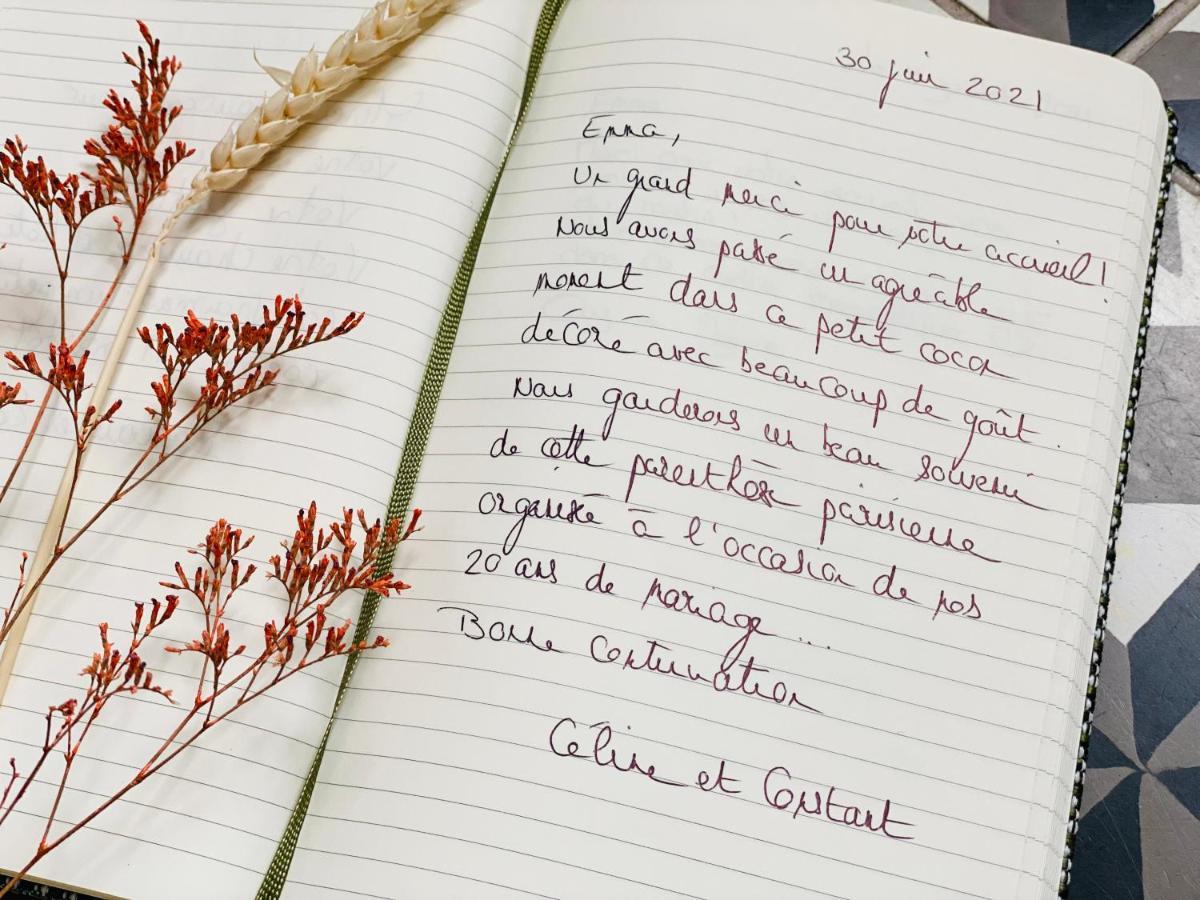 30 juin 2021
Emma,
Un grand merci pour votre accueil!
Nous avons passé un agréable
moment dans ce petit cocon
décoré avec beaucoup de goût.
Nous garderons un beau souvenir
de cette parenthèse parisienne
organisée à l'occasion de nos
20 ans de mariage...
Bonne Continuation
Céline et Constant